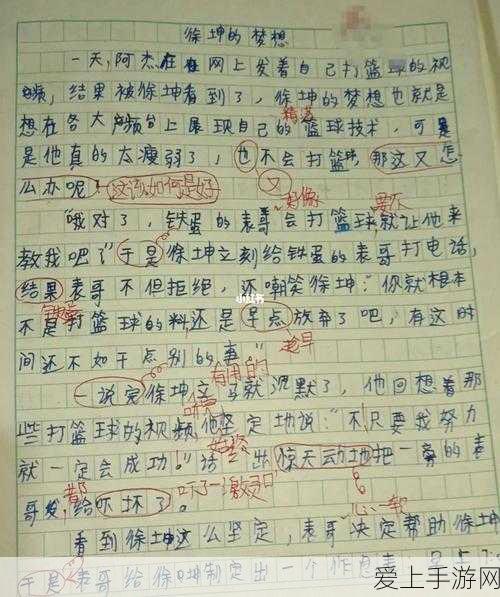 徐坤的梦想
一天,阿杰在网上发着自己打篮球的视
频,结果被徐坤看到了,徐坤的梦想也就是
想在各大频台上展现自己的篮球技术,可是
精湛
是他真的太瘦弱了,也不会打篮球,那这又怎
又
么办呢?这该如何是好
好像
要不
"哦对了,铁蛋的表哥会打篮球就让他来
教我吧了"于是徐坤立刻给铁蛋的表哥打电话,
结果表哥不但拒绝,还嘲笑徐坤:"你就根本
不是打篮球的料还是早点放弃了吧,有这时
趁早
间还不如干点别的事"
有用的
一说完徐坤这就沉默了,他回想着那
些打篮球的视频他坚定地说:"不,只要我努力
就一定会成功!"话出惊天动地把一旁的表
哥给吓坏了。
都
吓了一激灵
看到徐坤这么坚定,表哥决定帮助徐坤
于是表哥给徐坤制定出一个作息表:早上7:
小红书
爱上手游网